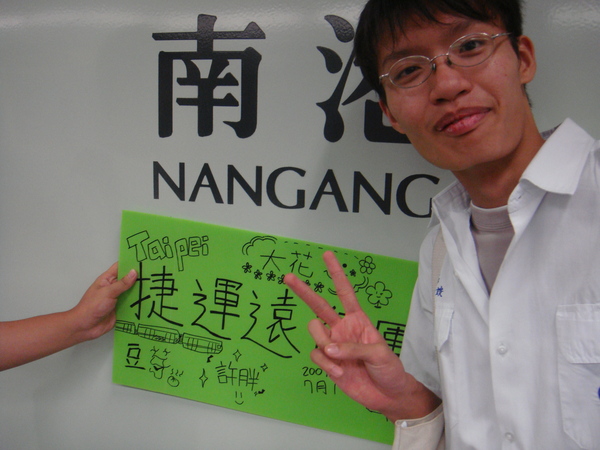 南港
NANGANG
Taipei
大花
捷運遠
豆芽
許胖
200
7月1